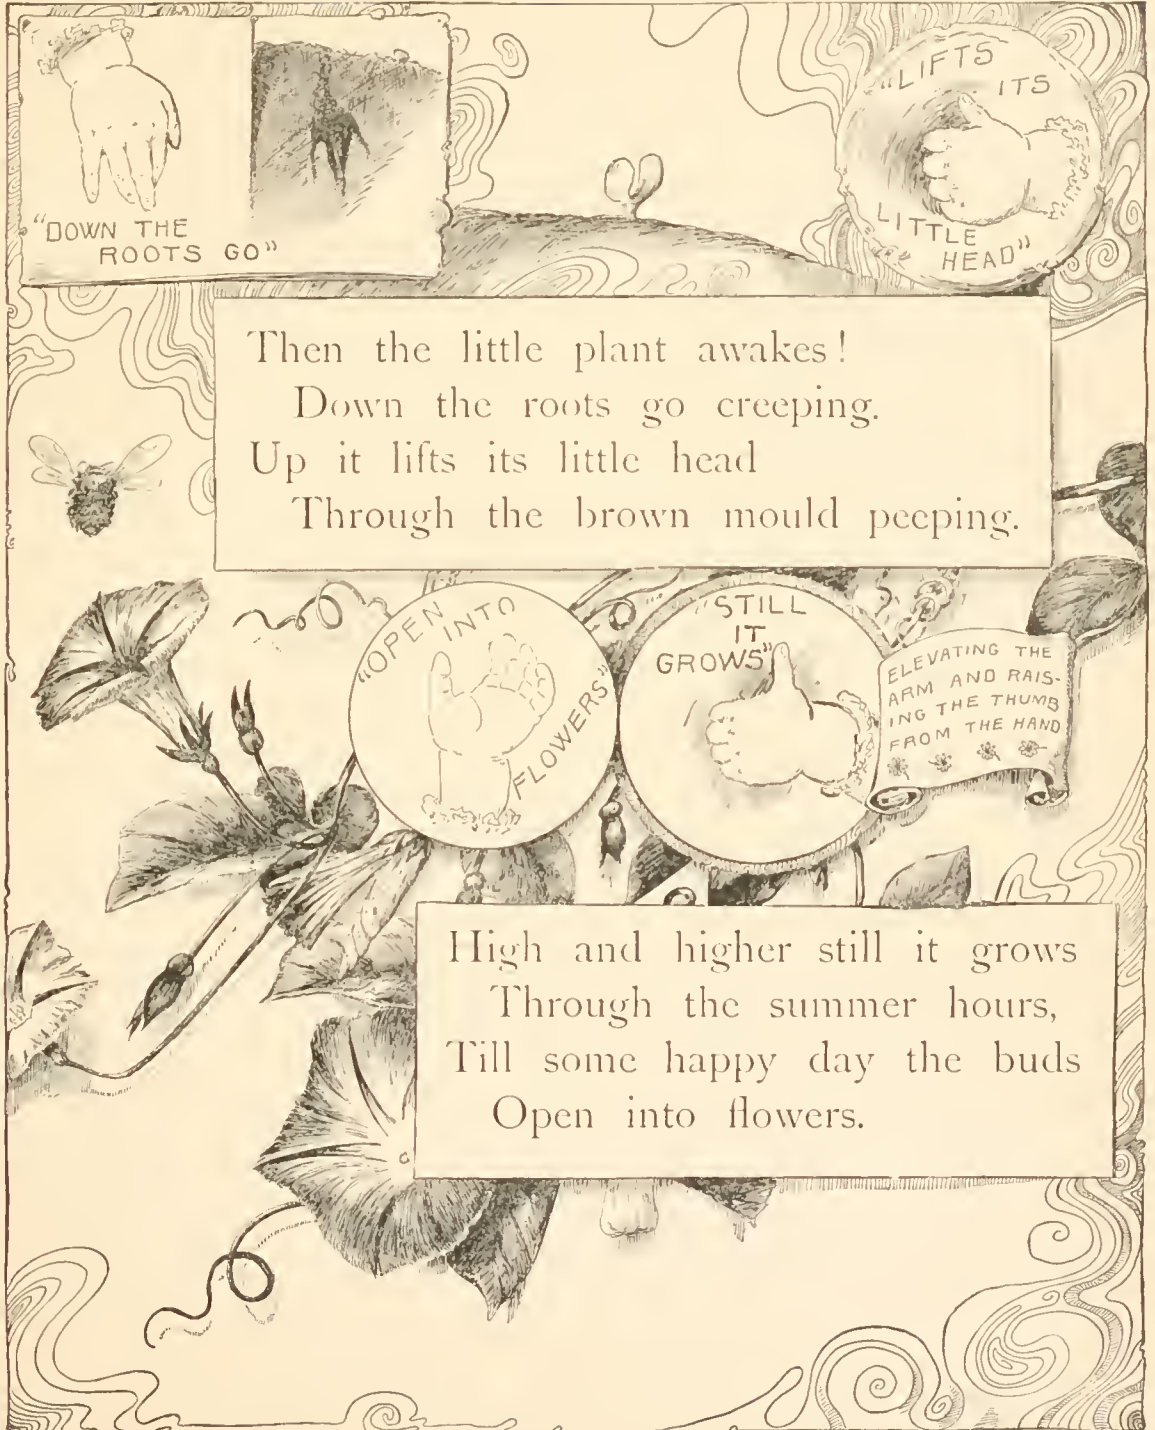 "DOWN THE
ROOTS GO"
"LIFTS
ITS
LITTLE
HEAD"
Then the little plant awakes!
Down the roots go creeping.
Up it lifts its little head
Through the brown mould peeping.
"OPEN
INTO
FLOWERS"
"STILL
IT
GROWS"
ELEVATING THE
ARM AND RAIS-
ING THE THUMB
FROM THE HAND
High and higher still it grows
Through the summer hours,
Till some happy day the buds
Open into flowers.